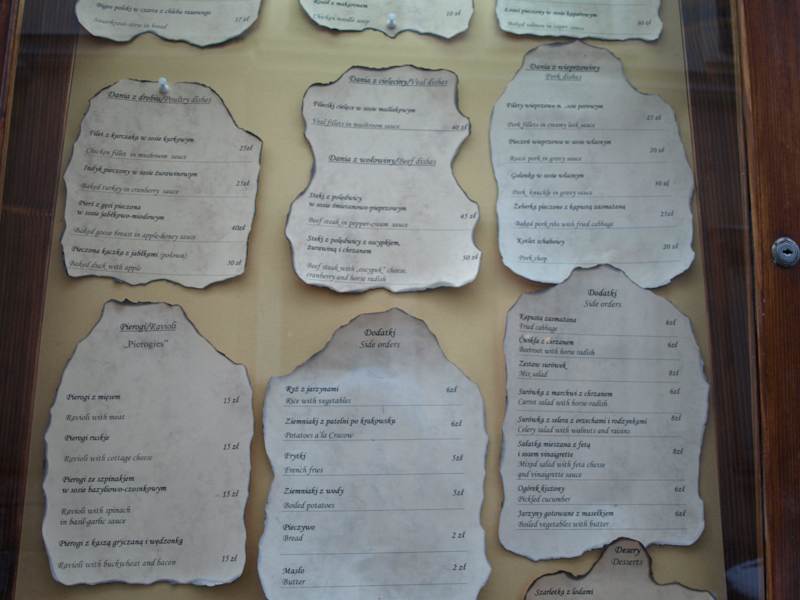 Żurek polski w czarce z chleba razowego
Smurkraut-stew in bread 17 zł
Rosół z makaronem
Chicken noodle soup 10 zł
Łosoś pieczony w sosie kaparowym
Baked salmon in caper sauce 30 zł
Dania z drobiu/Poultry dishes
Filet z kurczaka w sosie kurkowym 25zł
Chicken fillet in mushroom sauce
Indyk pieczony w sosie żurawinowym 25zł
Baked turkey in cranberry sauce
Pierś z gęsi pieczona
w sosie jabłkowo-miodowym 40zł
Baked goose breast in apple-honey sauce
Pieczona kaczka z jabłkami (połowa)
Baked duck with apple 30 zł
Dania z cielęciny/Veal dishes
Fileciki cielęce w sosie maślakowym
Veal fillets in mushroom sauce 40 zł
Dania z wołowiny/Beef dishes
Steki z polędwicy
w sosie śmietanowo-pieprzowym
Beef steak in pepper-cream sauce 45 zł
Steki z polędwicy z oscypkiem,
żurawiną i chrzanem
Beef steak with „oscypek” cheese, 50 zł
cranberry and horse radish
Dania z wieprzowiny
Pork dishes
Filety wieprzowe w sosie porowym 27 zł
Pork fillets in creamy leek sauce
Pieczeń wieprzowa w sosie własnym 20 zł
Roast pork in gravy sauce
Golonka w sosie własnym 30 zł
Pork knuckle in gravy sauce
Żeberka pieczone z kapustą zasmażaną 25zł
Baked pork ribs with fried cabbage
Kotlet schabowy 20 zł
Pork chop
Pierogi/Ravioli
„Pierogies”
Pierogi z mięsem 15 zł
Ravioli with meat
Pierogi ruskie 15 zł
Ravioli with cottage cheese
Pierogi ze szpinakiem
w sosie bazyliowo-czosnkowym 15 zł
Ravioli with spinach
in basil-garlic sauce
Pierogi z kaszą gryczaną i wędzonką 15 zł
Ravioli with buckwheat and bacon
Dodatki
Side orders
Ryż z jarzynami 6zł
Rice with vegetables
Ziemniaki z patelni po krakowsku 6zł
Potatoes a'la Cracow
Frytki 5zł
French fries
Ziemniaki z wody 5zł
Boiled potatoes
Pieczywo 2 zł
Bread
Masło 2 zł
Butter
Dodatki
Side orders
Kapusta zasmażana 6zł
Fried cabbage
Ćwikła z chrzanem 6zł
Beetroot with horse radish
Zestaw surówek 8zł
Mix salad
Surówka z marchwi z chrzanem 6zł
Carrot salad with horse-radish
Surówka z selera z orzechami i rodzynkami 8zł
Celery salad with walnuts and raisins
Sałatka mieszana z fetą
i sosem vinaigrette 8zł
Mixed salad with feta cheese
and vinaigrette sauce
Ogórek kiszony 6zł
Pickled cucumber
Jarzyny gotowane z masełkiem 6zł
Boiled vegetables with butter
Desery
Desserts
Szarlotka z lodami